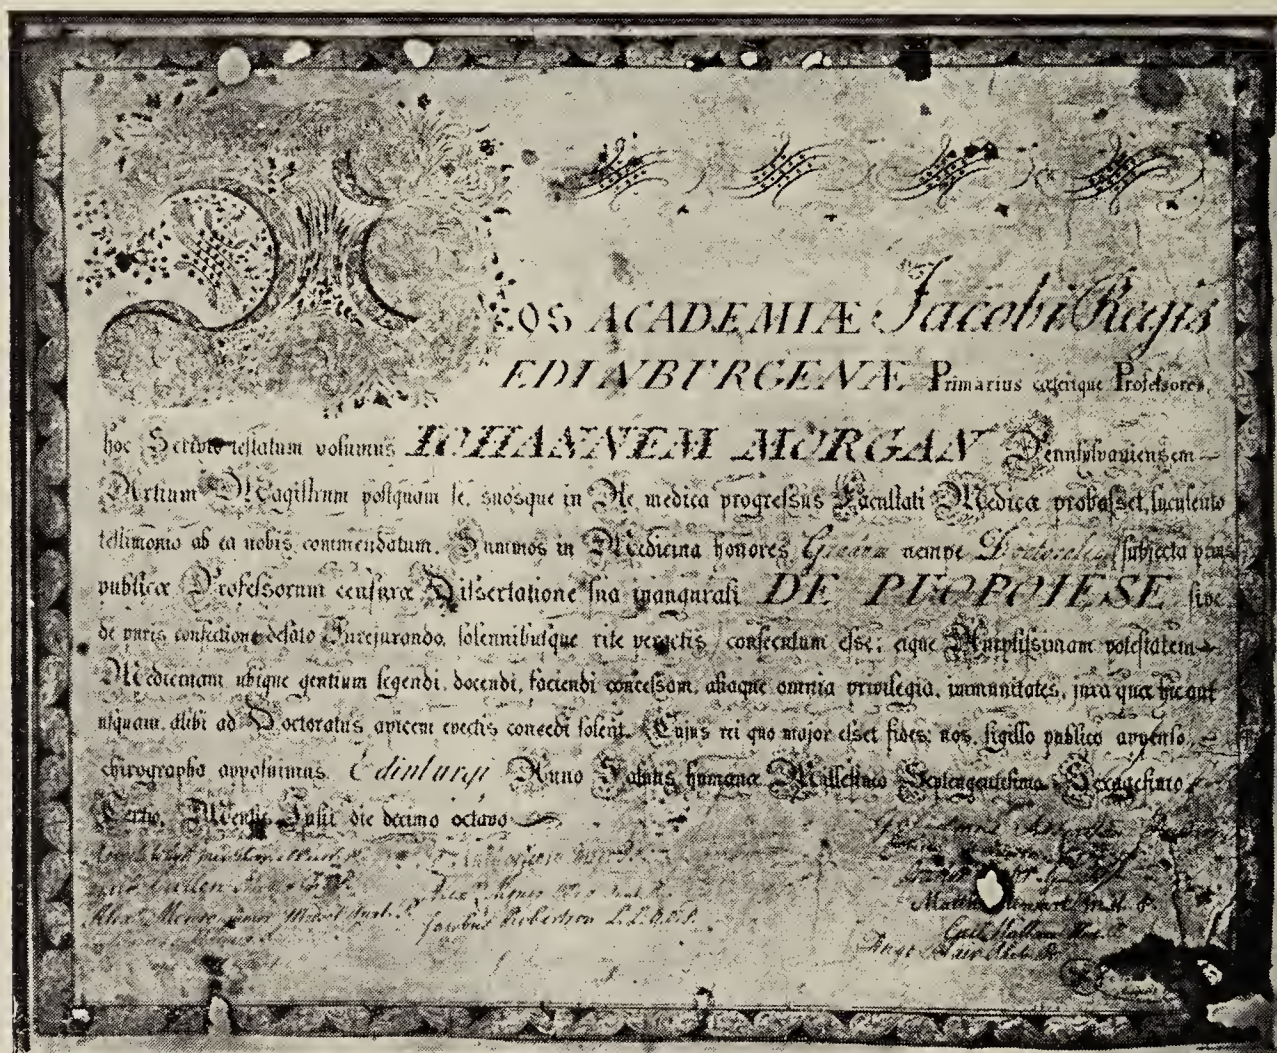 NOS ACADEMIÆ Jacobi Regis
EDINBURGENÆ Primarius cæterique Professores,
hoc Scripto testatum volumus IOHANNEM MORGAN Pennsylvaniensem
Artium Magistrum postquam se, suosque in Re medica progressus Facultati Medicæ probasset, luculento
testimonio ab ea nobis commendatum, Summos in Medicina honores Gradum nempe Doctoralem subjecta prius
publicæ Professorum censuræ Dissertatione sua inaugurali DE PUOPOIESE sive
de puris confectione delato Jurejurando, solennibusque rite peractis consecutum esse; eique Amplissimam potestatem
Medicinam ubique gentium legendi, docendi, faciendi concessam, aliaque omnia privilegia, immunitates, jura quæ hic aut
usquam alibi ad Doctoratus apicem evectis concedi solent. Cujus rei quo major esset fides; nos, sigillo publico appenso,
chirographa apposuimus Edinburgi Anno Salutis humanæ Millesimo Septengentesimo Sexagesimo
Tertio, Mensis Julii die decimo octavo
Cullen
Alex Monro junior
Jacobus Robertson L.L.O.O.P.
Matth Stewart Math P.
Hugo Blair Rhet. P.